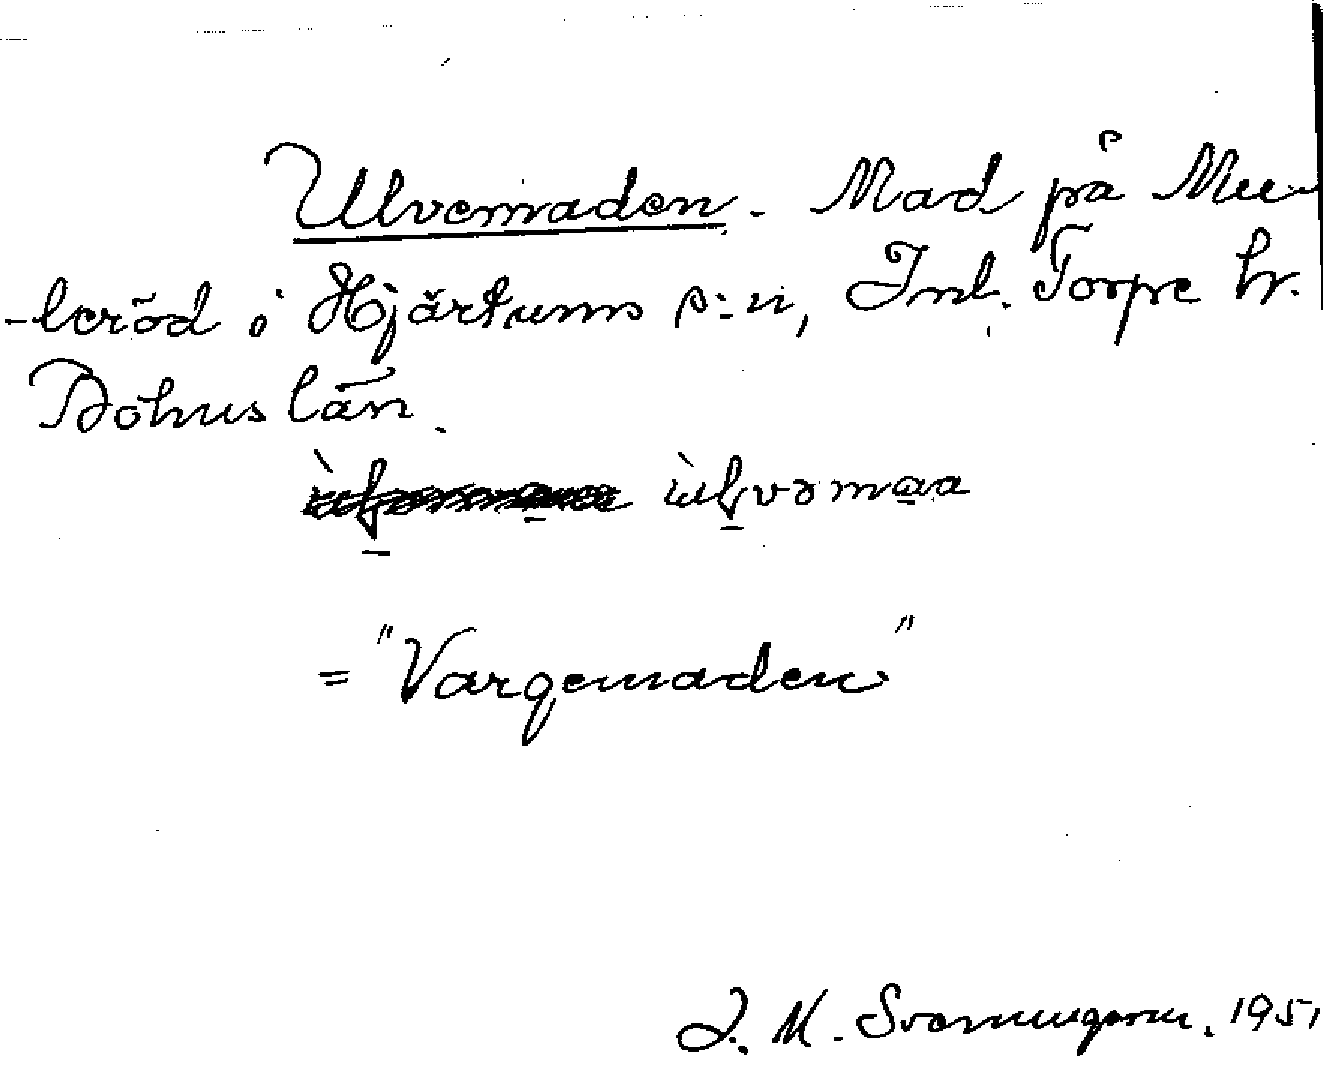 Ulvemaden. Mad på Mu-
-leröd i Hjärtums s:n, Inl. Torpe hr.
Bohuslän.
ùlvəmaa
= "Vargemaden"
J. M. Svenningson. 1951